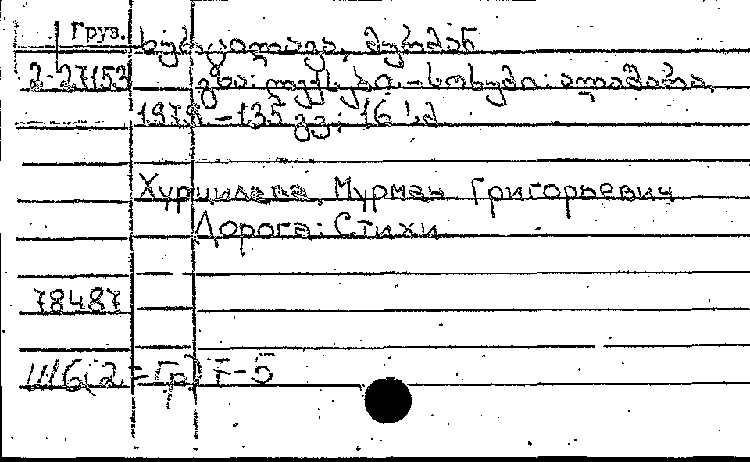 Груз.
ხურცილავა, მურმან
2-27153 გზა: ლექსები. – სოხუმი: ალაშარა,
1978. – 135 გვ.; 16 სმ
Хурцилава, Мурман Григорьевич
Дорога: Стихи
78487
Ш6(2=Гр)7-5